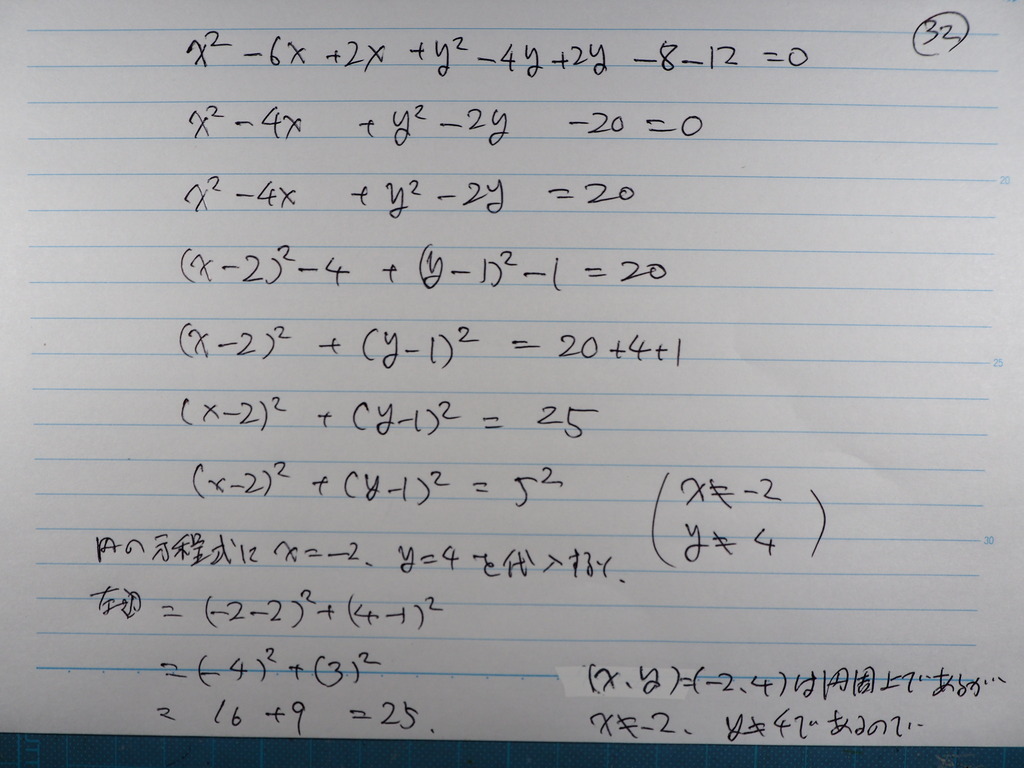 32
x² - 6x + 2x + y² - 4y + 2y - 8 - 12 = 0
x² - 4x + y² - 2y - 20 = 0
x² - 4x + y² - 2y = 20
(x-2)² - 4 + (y-1)² - 1 = 20
(x-2)² + (y-1)² = 20+4+1
(x-2)² + (y-1)² = 25
(x-2)² + (y-1)² = 5² (x≠-2
y≠4)
円の方程式に x=-2、y=4 を代入すると、
左辺 = (-2-2)² + (4-1)²
= (-4)² + (3)²
= 16 + 9 = 25.
(x、y)=(-2、4)は円周上であるが…
x≠-2、y≠4であるので…